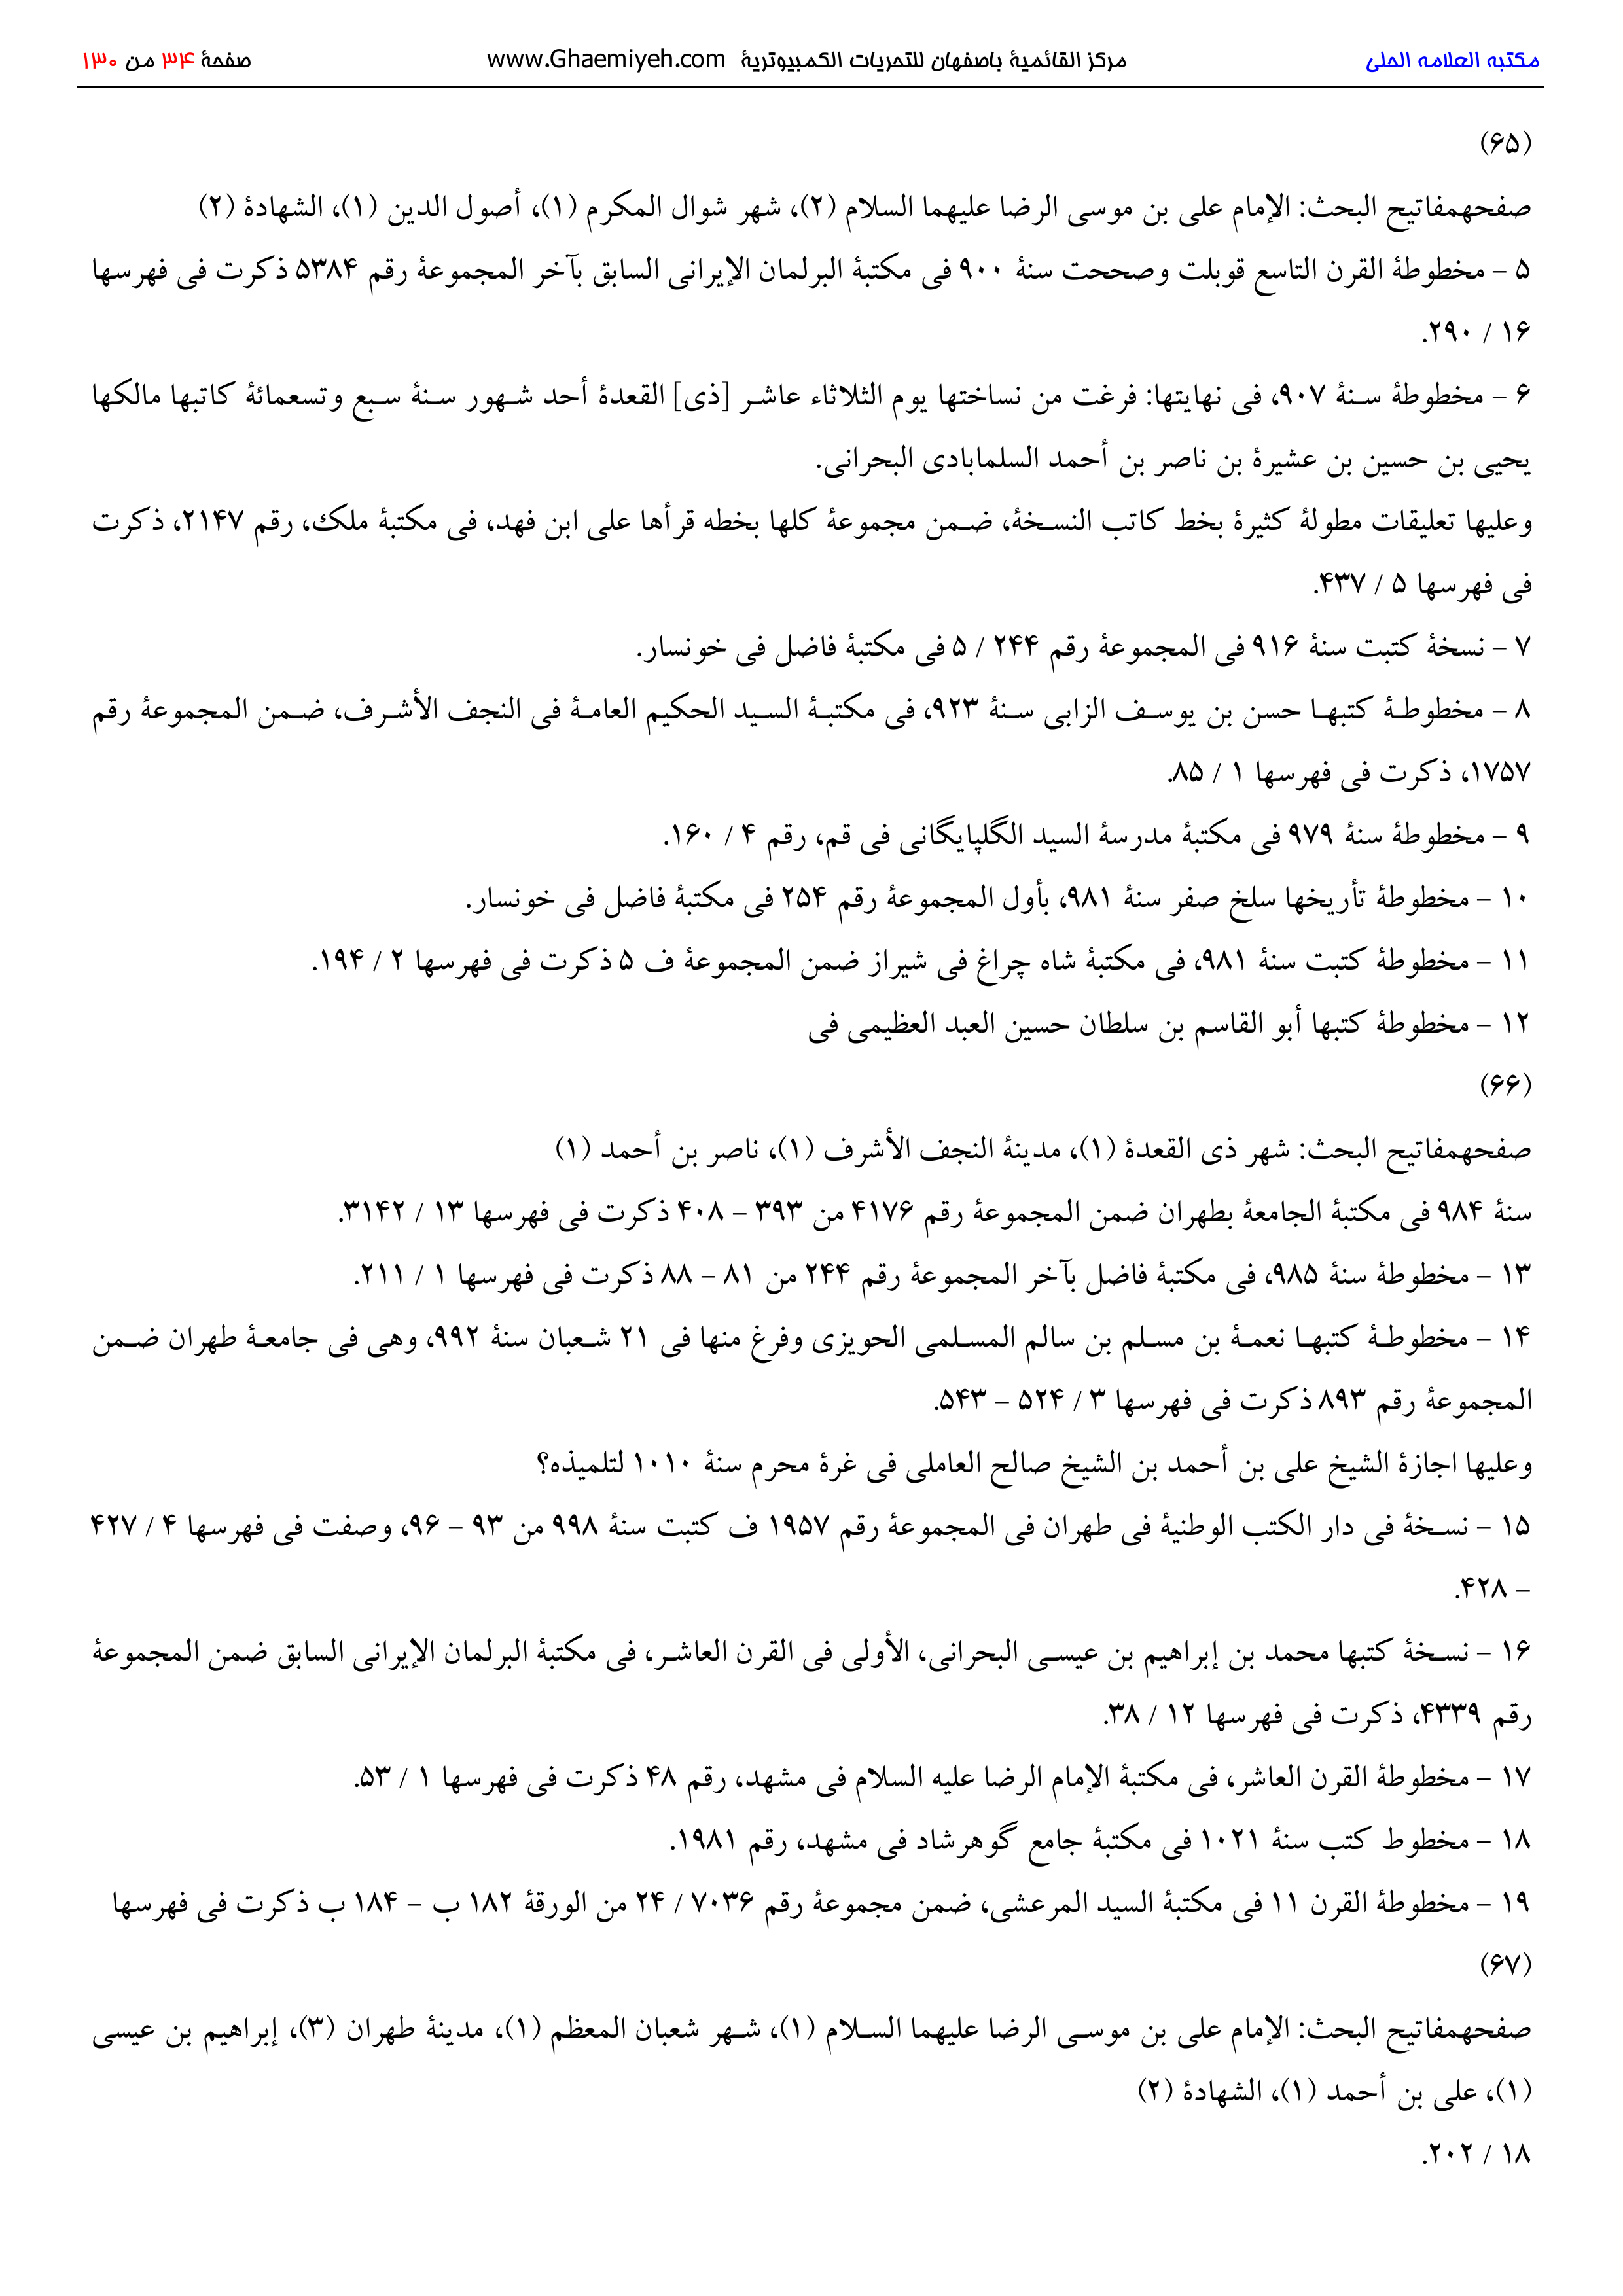 مكتبه العلامه الحلى مركز القائمیهٔ باصفهان للتحریات الكمبیوتریهٔ www.Ghaemiyeh.com صفحهٔ ۳۴ من ۱۳۰
(۶۵)
صفحهمفاتیح البحث: الإمام على بن موسى الرضا علیهما السلام (۲)، شهر شوال المكرم (۱)، أصول الدین (۱)، الشهادهٔ (۲)
۵ – مخطوطهٔ القرن التاسع قوبلت وصححت سنهٔ ۹۰۰ فى مكتبهٔ البرلمان الإیرانى السابق بآخر المجموعهٔ رقم ۵۳۸۴ ذكرت فى فهرسها
۱۶ / ۲۹۰.
۶ – مخطوطهٔ سنهٔ ۹۰۷، فى نهایتها: فرغت من نساختها یوم الثلاثاء عاشر [ذى] القعدهٔ أحد شهور سنهٔ سبع وتسعمائهٔ كاتبها مالكها
یحیى بن حسین بن عشیرهٔ بن ناصر بن أحمد السلمابادى البحرانى.
وعلیها تعلیقات مطولهٔ كثیرهٔ بخط كاتب النسخهٔ، ضمن مجموعهٔ كلها بخطه قرأها على ابن فهد، فى مكتبهٔ ملك، رقم ۲۱۴۷، ذكرت
فى فهرسها ۵ / ۴۳۷.
۷ – نسخهٔ كتبت سنهٔ ۹۱۶ فى المجموعهٔ رقم ۲۴۴ / ۵ فى مكتبهٔ فاضل فى خونسار.
۸ – مخطوطهٔ كتبها حسن بن یوسف الزابى سنهٔ ۹۲۳، فى مكتبهٔ السید الحكیم العامهٔ فى النجف الأشرف، ضمن المجموعهٔ رقم
۱۷۵۷، ذكرت فى فهرسها ۱ / ۸۵.
۹ – مخطوطهٔ سنهٔ ۹۷۹ فى مكتبهٔ مدرسهٔ السید الگلپایگانى فى قم، رقم ۴ / ۱۶۰.
۱۰ – مخطوطهٔ تأریخها سلخ صفر سنهٔ ۹۸۱، بأول المجموعهٔ رقم ۲۵۴ فى مكتبهٔ فاضل فى خونسار.
۱۱ – مخطوطهٔ كتبت سنهٔ ۹۸۱، فى مكتبهٔ شاه چراغ فى شیراز ضمن المجموعهٔ ف ۵ ذكرت فى فهرسها ۲ / ۱۹۴.
۱۲ – مخطوطهٔ كتبها أبو القاسم بن سلطان حسین العبد العظیمى فى
(۶۶)
صفحهمفاتیح البحث: شهر ذى القعدهٔ (۱)، مدینهٔ النجف الأشرف (۱)، ناصر بن أحمد (۱)
سنهٔ ۹۸۴ فى مكتبهٔ الجامعهٔ بطهران ضمن المجموعهٔ رقم ۴۱۷۶ من ۳۹۳ – ۴۰۸ ذكرت فى فهرسها ۱۳ / ۳۱۴۲.
۱۳ – مخطوطهٔ سنهٔ ۹۸۵، فى مكتبهٔ فاضل بآخر المجموعهٔ رقم ۲۴۴ من ۸۱ – ۸۸ ذكرت فى فهرسها ۱ / ۲۱۱.
۱۴ – مخطوطهٔ كتبها نعمهٔ بن مسلم بن سالم المسلمى الحویزى وفرغ منها فى ۲۱ شعبان سنهٔ ۹۹۲، وهى فى جامعهٔ طهران ضمن
المجموعهٔ رقم ۸۹۳ ذكرت فى فهرسها ۳ / ۵۲۴ – ۵۴۳.
وعلیها اجازهٔ الشیخ على بن أحمد بن الشیخ صالح العاملى فى غرهٔ محرم سنهٔ ۱۰۱۰ لتلمیذه؟
۱۵ – نسخهٔ فى دار الكتب الوطنیهٔ فى طهران فى المجموعهٔ رقم ۱۹۵۷ ف كتبت سنهٔ ۹۹۸ من ۹۳ – ۹۶، وصفت فى فهرسها ۴ / ۴۲۷
– ۴۲۸.
۱۶ – نسخهٔ كتبها محمد بن إبراهیم بن عیسى البحرانى، الأولى فى القرن العاشر، فى مكتبهٔ البرلمان الإیرانى السابق ضمن المجموعهٔ
رقم ۴۳۳۹، ذكرت فى فهرسها ۱۲ / ۳۸.
۱۷ – مخطوطهٔ القرن العاشر، فى مكتبهٔ الإمام الرضا علیه السلام فى مشهد، رقم ۴۸ ذكرت فى فهرسها ۱ / ۵۳.
۱۸ – مخطوط كتب سنهٔ ۱۰۲۱ فى مكتبهٔ جامع گوهرشاد فى مشهد، رقم ۱۹۸۱.
۱۹ – مخطوطهٔ القرن ۱۱ فى مكتبهٔ السید المرعشى، ضمن مجموعهٔ رقم ۷۰۳۶ / ۲۴ من الورقهٔ ۱۸۲ ب – ۱۸۴ ب ذكرت فى فهرسها
(۶۷)
صفحهمفاتیح البحث: الإمام على بن موسى الرضا علیهما السلام (۱)، شهر شعبان المعظم (۱)، مدینهٔ طهران (۳)، إبراهیم بن عیسى
(۱)، على بن أحمد (۱)، الشهادهٔ (۲)
۱۸ / ۲۰۲.